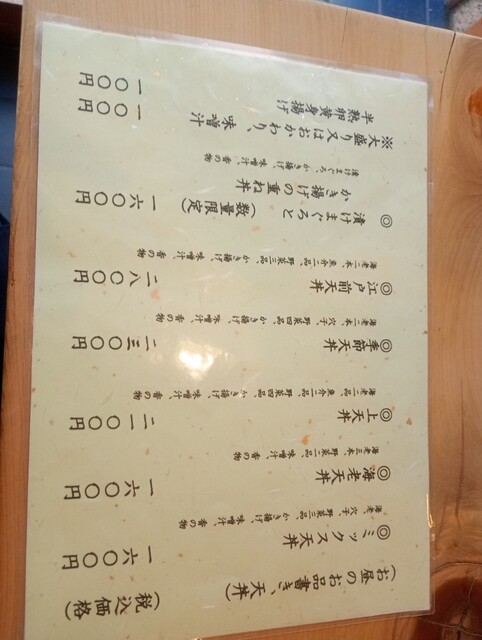 （お昼のお品書き、天丼）　（税込価格）
◎ミックス天丼　一六〇〇円
海老、穴子、野菜三品、かき揚げ、味噌汁、香の物
◎海老天丼　一六〇〇円
海老三本、野菜三品、かき揚げ、味噌汁、香の物
◎上天丼　二一〇〇円
海老二本、魚介二品、野菜四品、かき揚げ、味噌汁、香の物
◎季節天丼　二三〇〇円
海老二本、穴子、野菜四品、かき揚げ、味噌汁、香の物
◎江戸前天丼　二八〇〇円
海老二本、魚介二品、野菜三品、かき揚げ、味噌汁、香の物
◎漬けまぐろと
かき揚げの重ね丼（数量限定）　一六〇〇円
漬けまぐろ、かき揚げ、味噌汁、香の物
※大盛り又はおかわり、味噌汁　一〇〇円
半熟卵黄身揚げ　一〇〇円